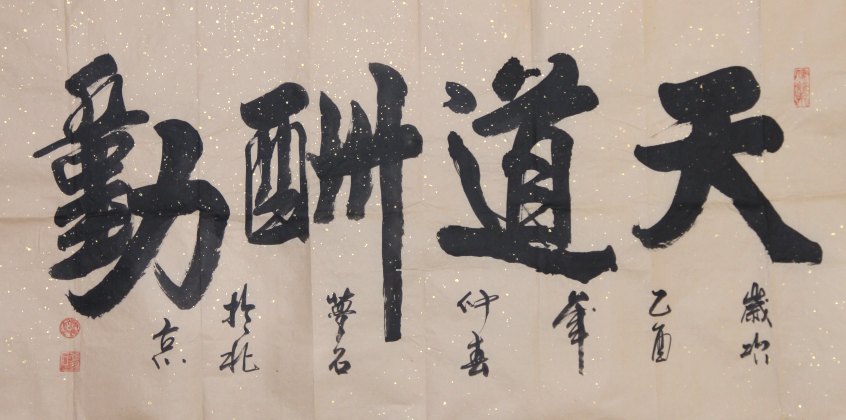 天道酬勤
歲次乙酉年仲春夢石於北京